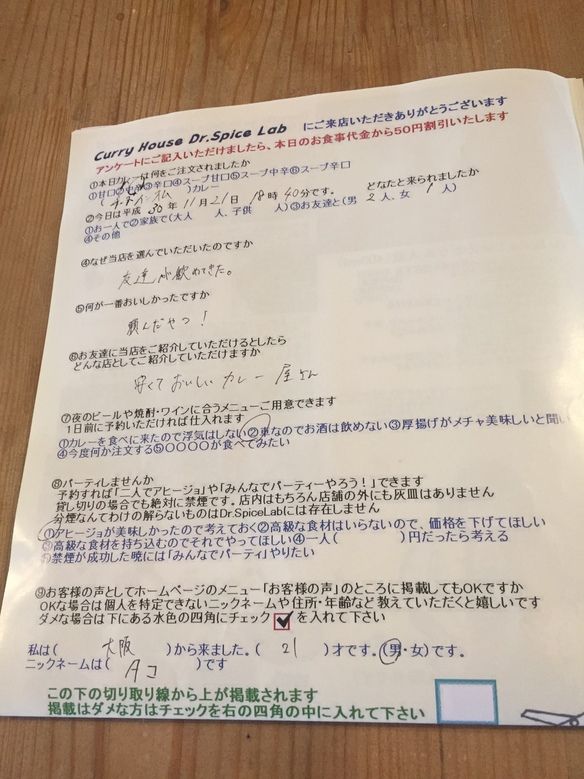 Curry House Dr.Spice Lab にご来店いただきありがとうございます
アンケートにご記入いただけましたら、本日のお食事代金から50円割引いたします
①本日カレーは何をご注文されましたか
①甘口②中辛③辛口④スープ甘口⑤スープ中辛⑥スープ辛口
()カレー
②今日は平成 30年 11月 21日 18時 40分です。 どなたと来られましたか
①お一人で②ご家族で(大人 人、子供 人)③お友達と(男 2人、女 1人)
④その他
④なぜ当店を選んでいただいたのですか
友達が歓めてきた。
⑤何が一番おいしかったですか
頼んだやつ!
⑥お友達に当店をご紹介していただけるとしたら
どんな店としてご紹介していただけますか
安くておいしいカレー屋さん
⑦夜のビールや焼酎・ワインに合うメニューご用意できます
1日前に予約いただければ仕入れます
①カレーを食べに来たので浮気はしない②車なのでお酒は飲めない③厚揚げがメチャ美味しいと聞い
④今度何か注文する⑤〇〇〇〇が食べてみたい
⑧パーティしませんか
予約すれば「二人でアヒージョ」や「みんなでパーティーやろう!」できます
貸し切りの場合でも絶対に禁煙です。店内はもちろん店舗の外にも灰皿はありません
分煙なんてわけの解らないものはDr.SpiceLabには存在しません
①アヒージョが美味しかったので考えておく②高級な食材はいらないので、価格を下げてほしい
③高級な食材を持ち込むのでそれでやってほしい④一人( )円だったら考える
⑤禁煙が成功した暁には「みんなでパーティ」やりたい
⑨お客様の声としてホームページのメニュー「お客様の声」のところに掲載してもOKですか
OKな場合は個人を特定できないニックネームや住所・年齢など教えていただくと嬉しいです
ダメな場合は下にある水色の四角にチェック を入れて下さい
私は( 大阪 )から来ました。( 21 )才です。(男・女)です。
ニックネームは( タコ )です
この下の切り取り線から上が掲載されます
掲載はダメな方はチェックを右の四角の中に入れて下さい